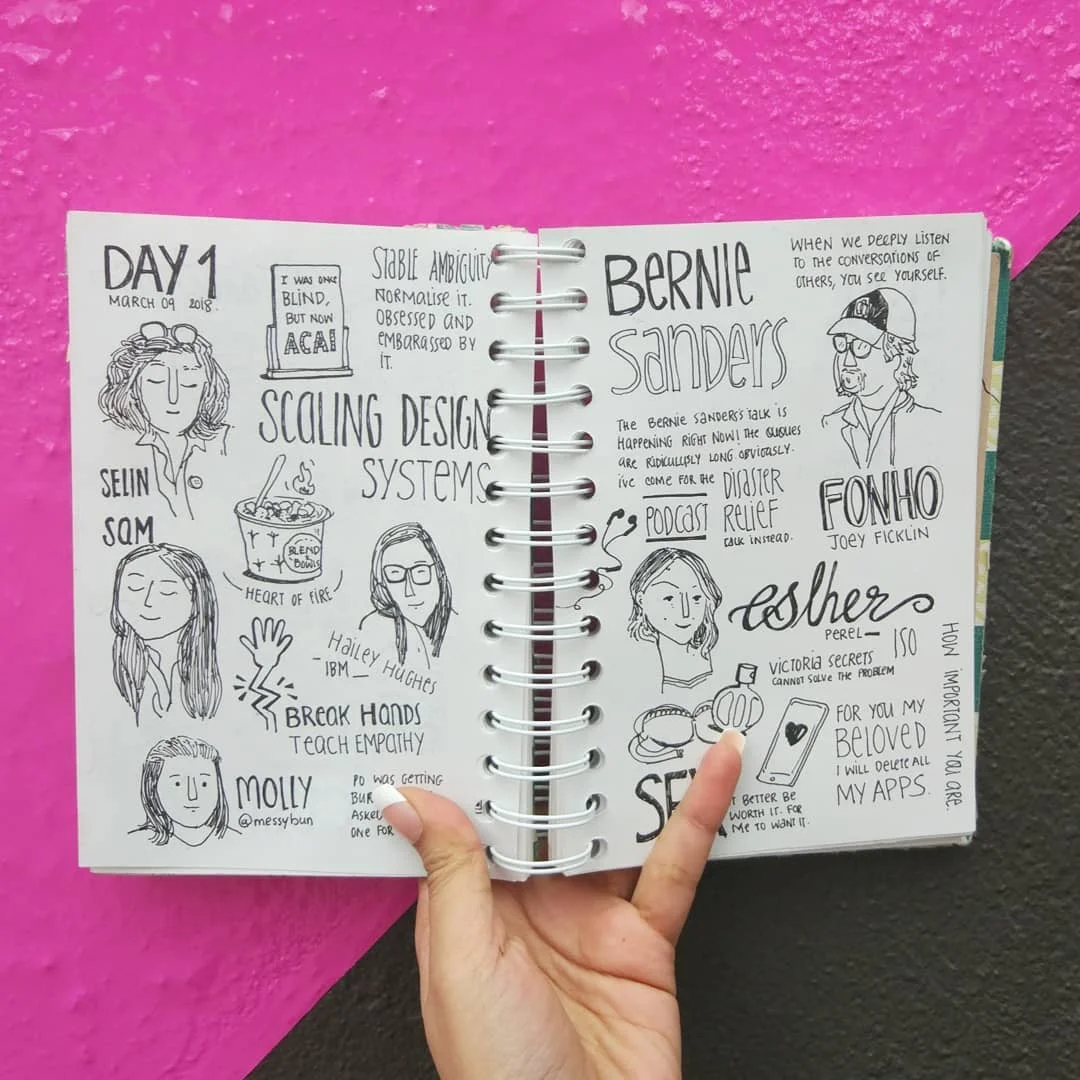 DAY 1
MARCH 09 2018.
I WAS ONCE
BLIND,
BUT NOW
ACAI
STABLE AMBIGUITY
NORMALISE IT.
OBSESSED AND
EMBARASSED BY
IT.
SCALING DESIGN
SYSTEMS
SELIN
SAM
BLEND &
BOWLS
HEART OF FIRE
HAILEY HUGHES
_IBM_
BREAK HANDS
TEACH EMPATHY
MOLLY
@messybun
PO WAS GETTING
BUR
ASKE
ONE FOR
BERNIE
SANDERS
WHEN WE DEEPLY LISTEN
TO THE CONVERSATIONS OF
OTHERS, YOU SEE YOURSELF.
THE BERNIE SANDERS'S TALK IS
HAPPENING RIGHT NOW! THE QUEUES
ARE RIDICULOUSLY LONG OBVIOUSLY.
I'VE COME FOR THE DISASTER
PODCAST RELIEF
TALK INSTEAD.
FONHO
JOEY FICKLIN
esther
PEREL_ ISO
VICTORIA SECRETS
CANNOT SOLVE THE PROBLEM
FOR YOU MY
BELOVED
I WILL DELETE ALL
MY APPS.
HOW IMPORTANT YOU ARE.
BETTER BE
WORTH IT. FOR
ME TO WANT IT.